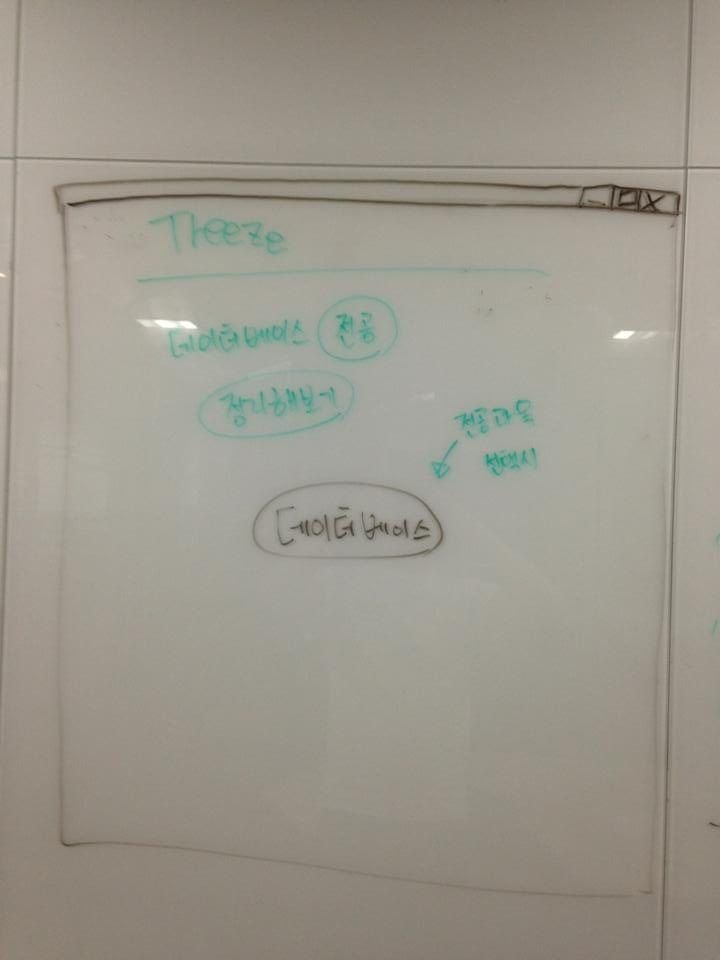 Treeze
데이터베이스 전공
정리해보기
전공과목
선택시
데이터베이스